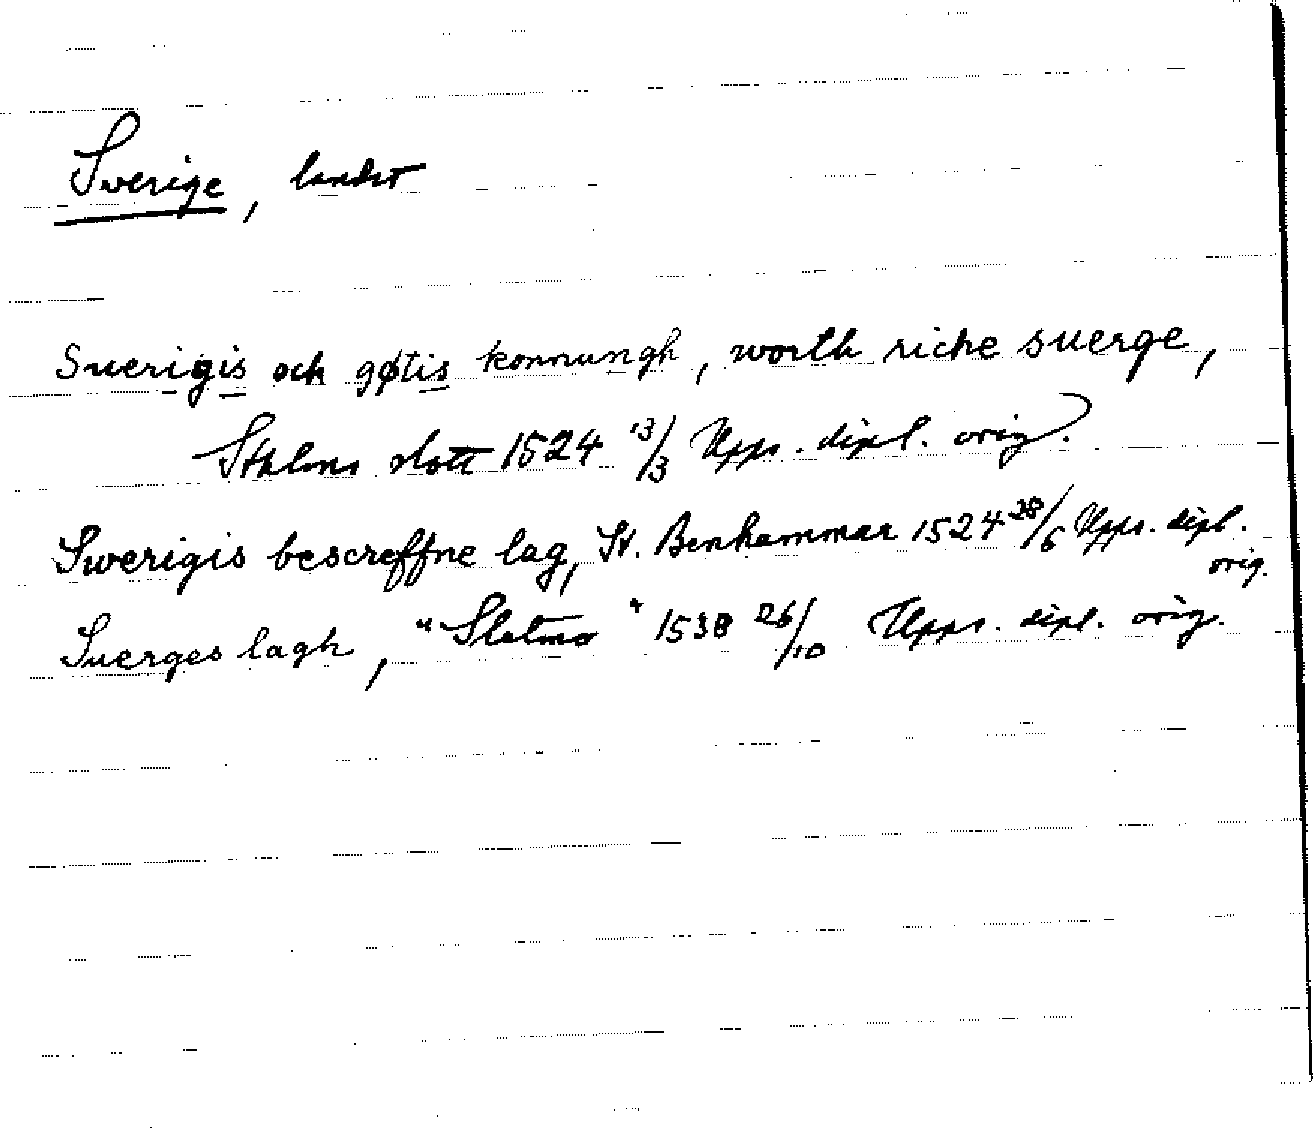 Sverige, landet
Suerigis och gøtis konnungh, worth riche suerge,
Sthlms slott 1524 13/3 Upps. dipl. orig.
Swerigis bescreffne lag, St. Benhammar 1524 28/6 Upps. dipl.
orig.
Suerges lagh, "Slatmo" 1538 26/10 Upps. dipl. orig.